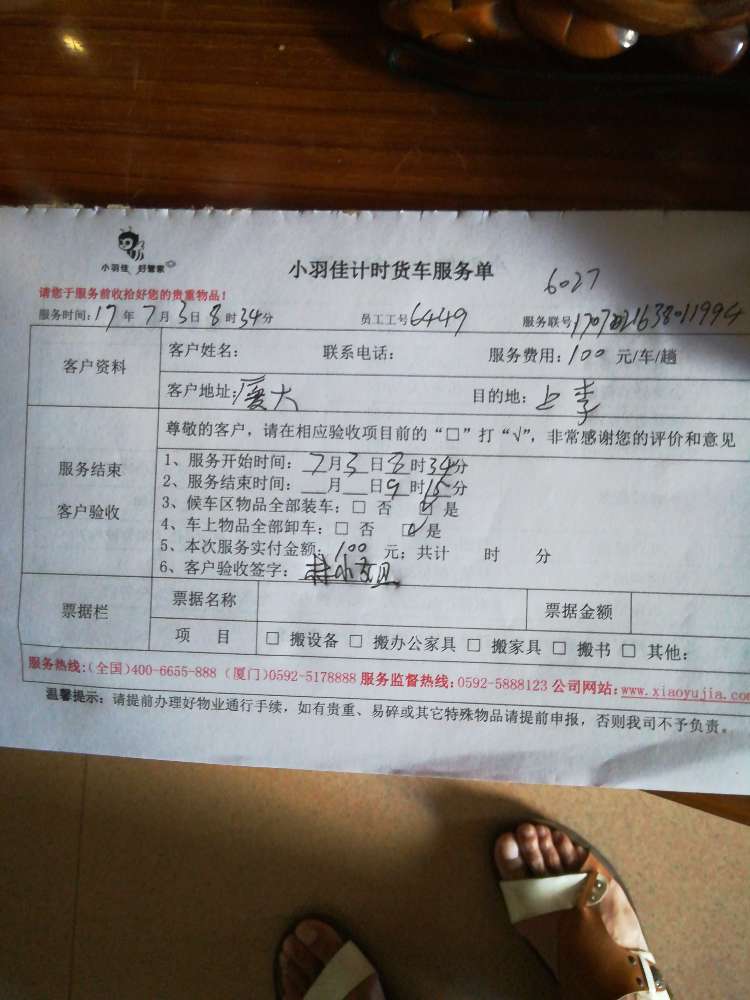 小羽佳 好管家
小羽佳计时货车服务单
6027
请您于服务前收拾好您的贵重物品！
服务时间：17年7月3日8时34分 员工工号6449 服务联号
客户资料
客户姓名： 联系电话： 服务费用：100 元/车/趟
客户地址：厦大 目的地：上李
服务结束
客户验收
尊敬的客户，请在相应验收项目前的“□”打“√”，非常感谢您的评价和意见
1、服务开始时间：7月3日8时34分
2、服务结束时间：__月__日9时15分
3、候车区物品全部装车：□ 否 ☑ 是
4、车上物品全部卸车：□ 否 ☑ 是
5、本次服务实付金额：100 元；共计 时 分
6、客户验收签字：
票据栏
票据名称 票据金额
项 目 □ 搬设备 □ 搬办公家具 □ 搬家具 □ 搬书 □ 其他：
服务热线:(全国)400-6655-888 (厦门)0592-5178888 服务监督热线:0592-5888123 公司网站:www.xiaoyujia.co
温馨提示：请提前办理好物业通行手续，如有贵重、易碎或其它特殊物品请提前申报，否则我司不予负责。